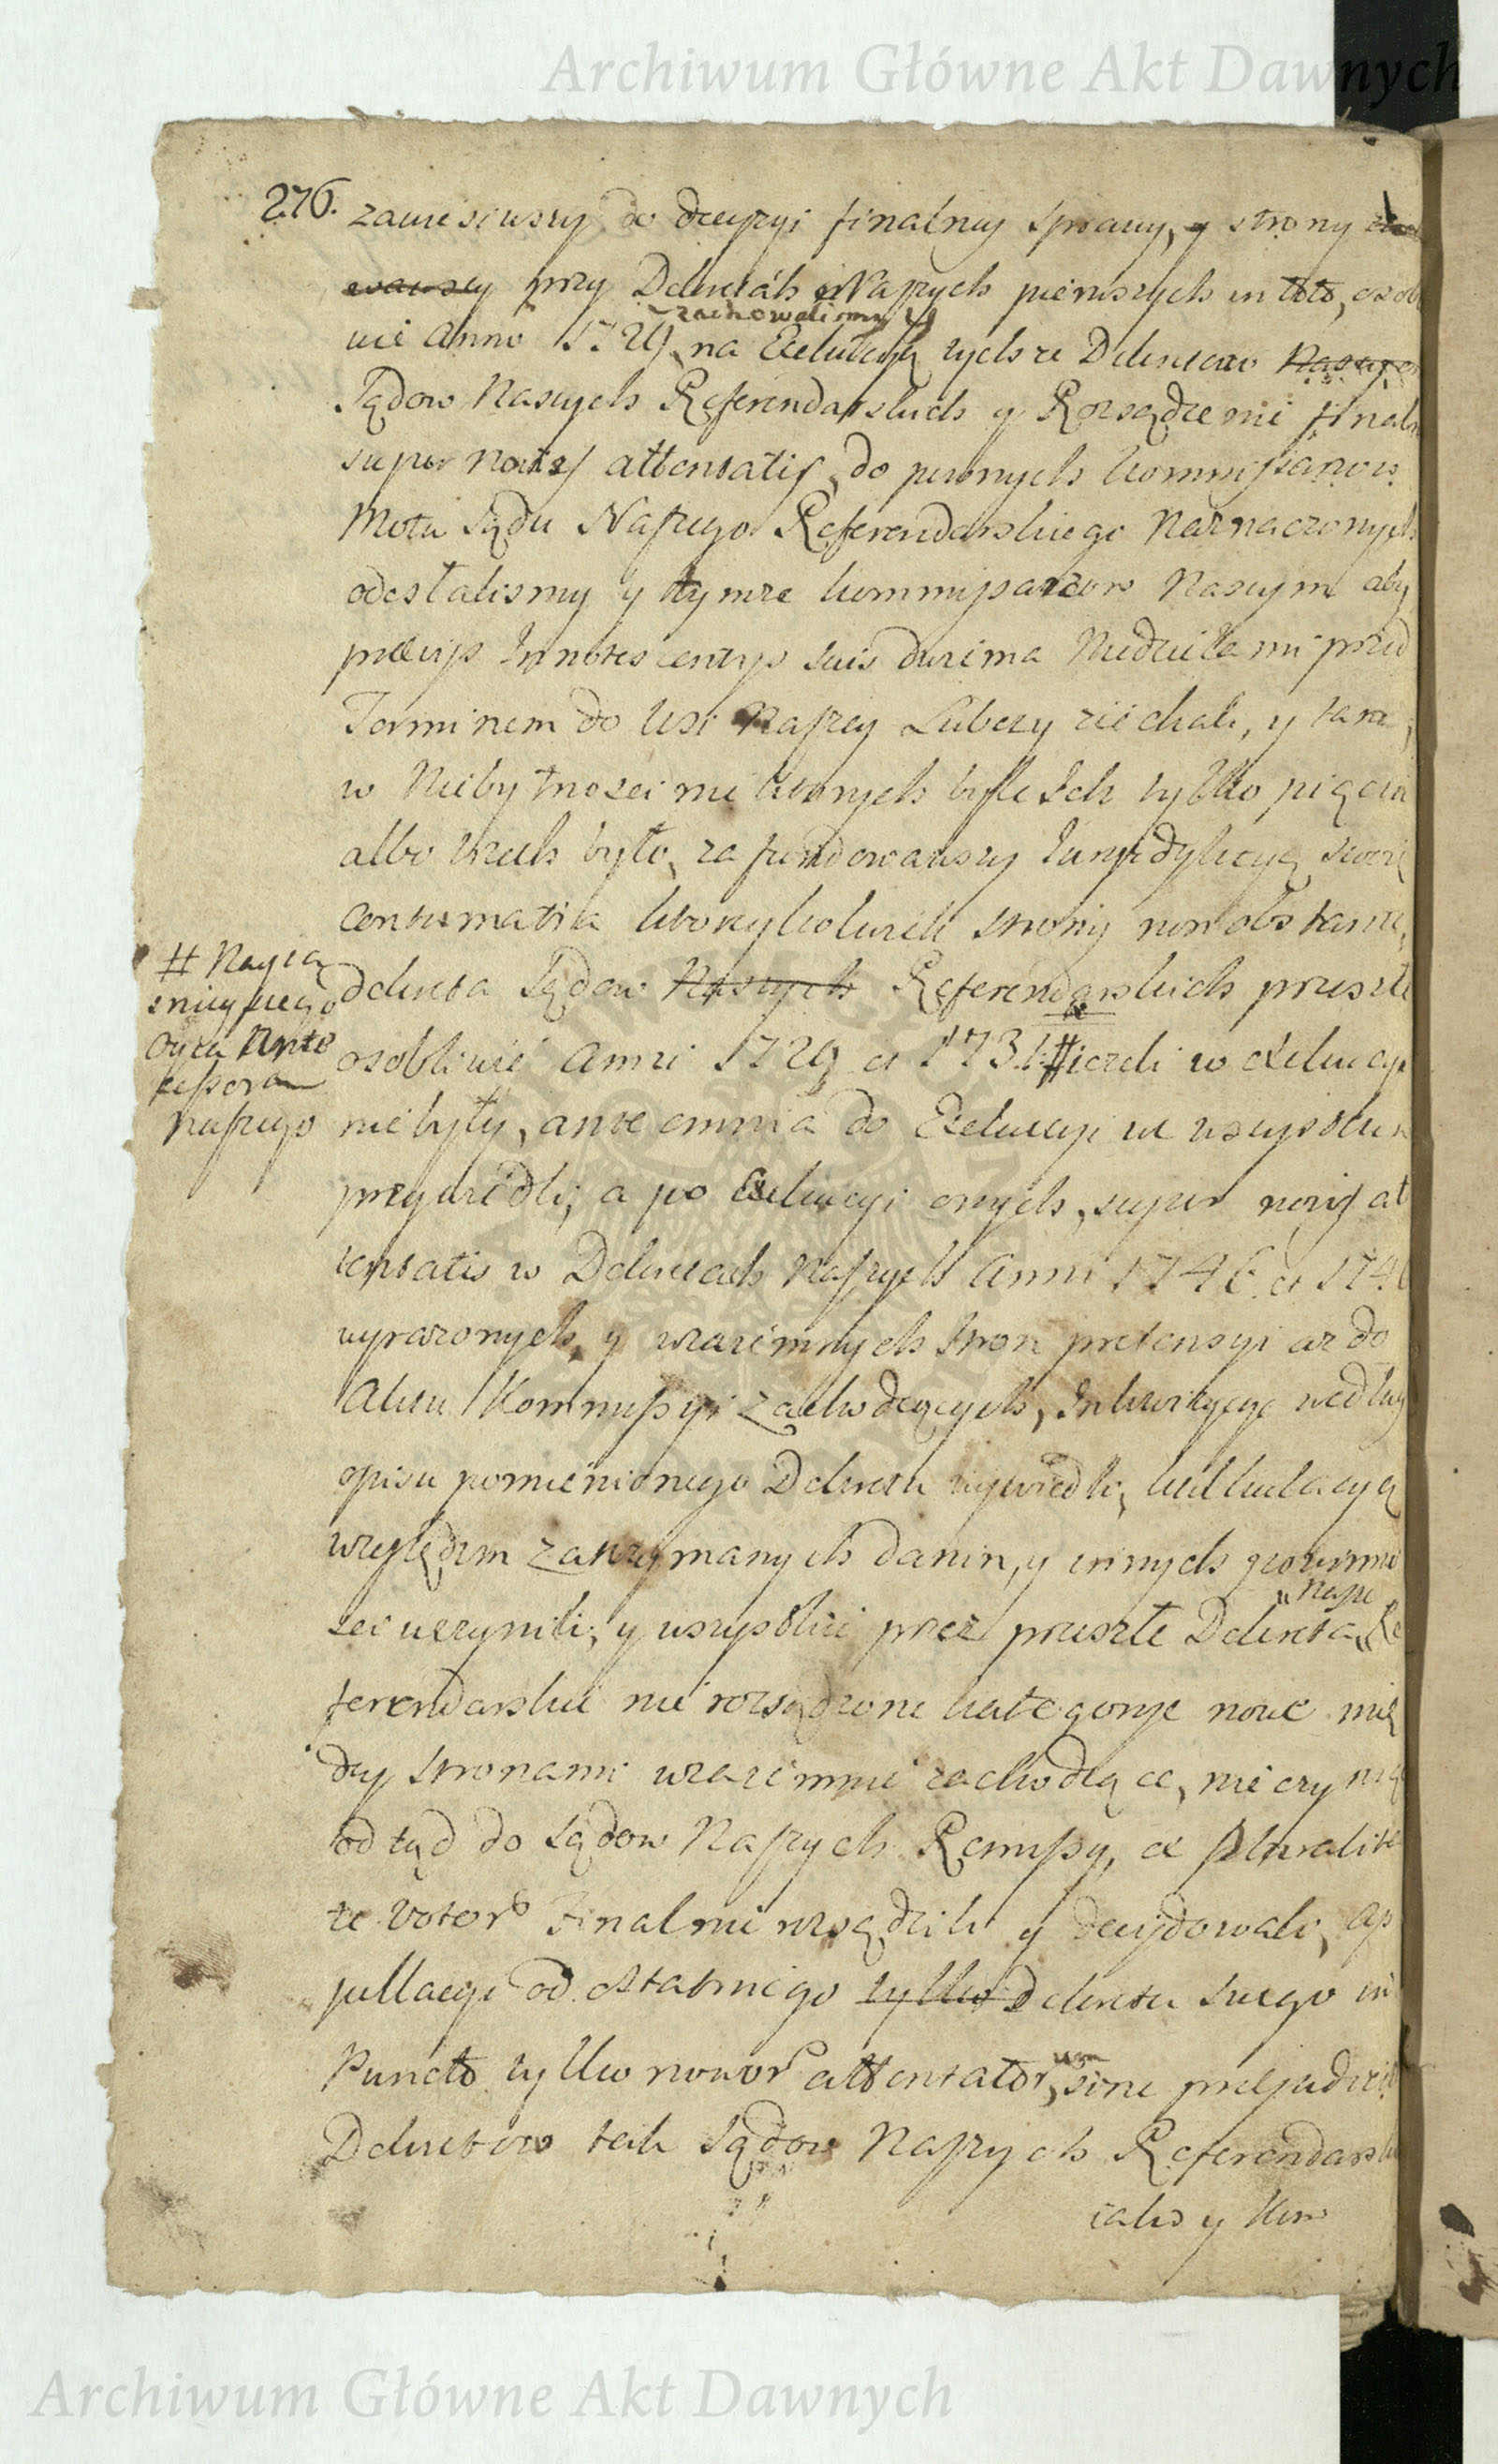 Archiwum Główne Akt Dawnych
276. zawiesiwszy do decyzyi finalney sprawy, y strony
przy Dekretach Naszych pierwszych in toto, osob
zachowalismy
nie Anno 1729 na Exekucyą tychze Dekretow
Sądow Naszych Referendarskich y Rozsądzenie finaln
super novis attentatis, do pewnych Kommissarzow
Motu Sądu Naszego Referendarskiego Naznaczonych
odesłalismy y tymze kommissarzow Naszym aby
praeviis Innotescentiis suis dwiema Niedzielami przed
Terminem do Wsi Naszey Lubczy ziechali, y tam
w Niebytnosci niektorych byle Ich tylko pięciu
albo trzech było, zafundowawszy Juryzdykcyą swoią
contumatia ktoreykolwiek strony non obstante,
dekreta Sądow Naszych Referendarskich przeszłe
osobliwie Anni 1729 et 1731 # iezeli w exekucyi
# Nayia
snieyszego
Oyca Ante
cessora
naszego
nie były, ante omnia do Exekucyi we wszystkim
przywiedli, a po Exekucyi onych, super novis at
tentatis w Dekretach Naszych Anni 1746 et 174
wyrazonych, y wzaiemnych stron pretensyi az do
Aktu Kommissyi zachodzących, Inkwizycye według
opisu pomienionego Dekretu wywiedli, kalkulacyą
względem zatrzymanych danin, y innych powinno
sci uczynili, y wszystkie przez przeszłe Dekreta
Nasze
ferendarskie nie rozsądzone kategorye nowe mię
dzy stronami wzaiemnie zachodzące, nie czynią
odtąd do Sądow Naszych Remissy, ex pluralita
te Votorum finalnie rozsądzili y decydowali, ap
pellacyi od ostatniego tylko Dekretu swego in
Puncto tylko novor attentator, sine praejudicio
Dekretow tak Sądow Naszych Referendarski
iako y Kom
Archiwum Główne Akt Dawnych